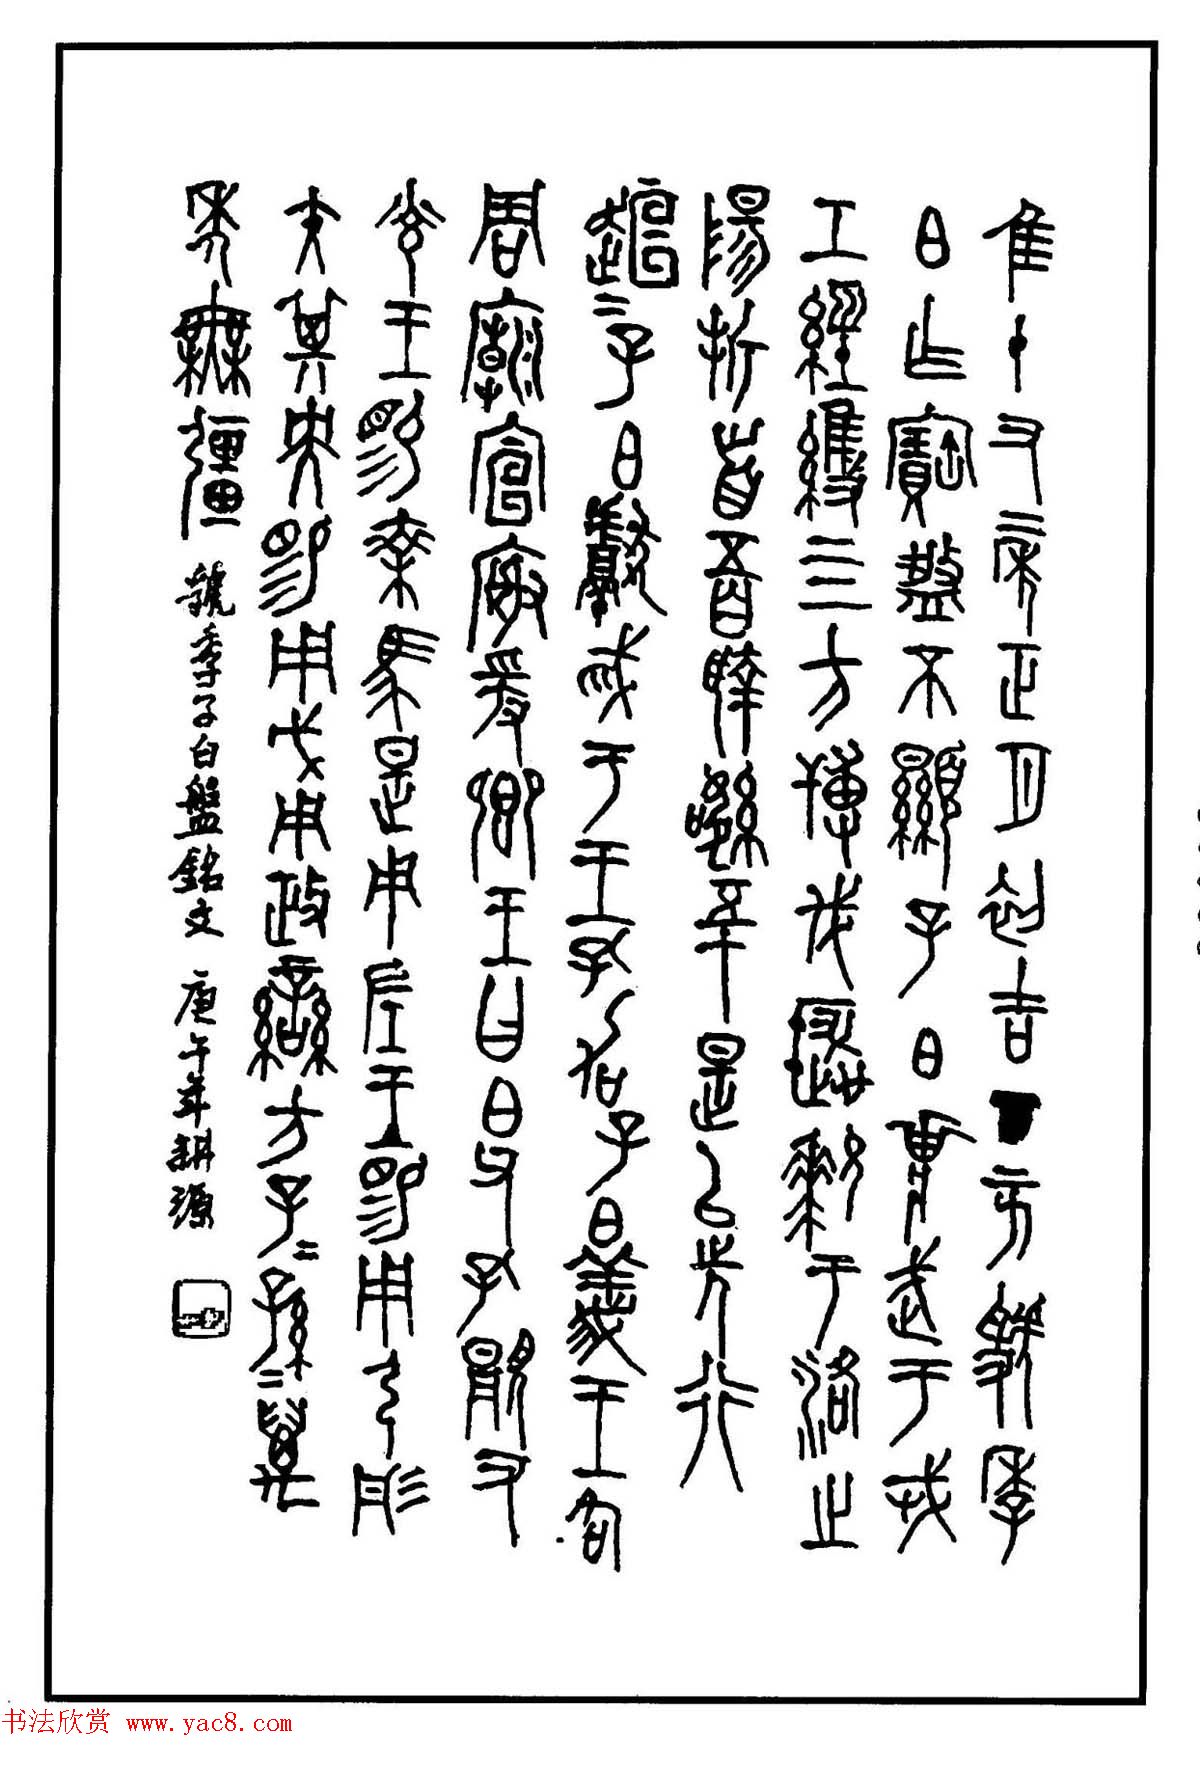 隹十又二年正月初吉丁亥虢季
白乍寶盤不顯子白壯武于戎
工經維四方搏伐玁狁于洛之
陽折首五百執訊五十是以先行
桓=子白獻馘于王孔加子白義王各
周廟宣榭爰鄉王曰白父孔顯又
光王賜乘馬是用左王賜用弓彤
矢其央賜用戉用政蠻方子=孫=萬
年無疆
虢季子白盤銘文 庚午年耕源
书法欣赏 www.yac8.com